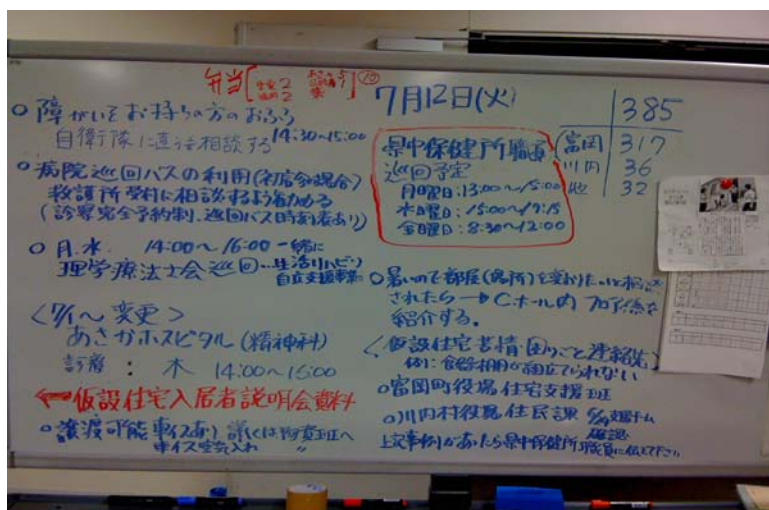 弁当
7月12日(火)
385
富岡 317
川内 36
他 32
○障がいをお持ちの方のおふろ
自衛隊に直接相談する 14:30~15:00
○病院巡回バスの利用(初店の場合)
救護所受付に相談するよう
(診察完全予約制、巡回バス時刻表あり)
○月.水. 14:00~16:00 一緒に
理学療法士会巡回…生活リハビリ
自立支援事業
<7/1~変更>
あさかホスピタル(精神科)
診療: 木 14:00~16:00
仮設住宅入居者説明会資料
○譲渡可能車イスあり 詳しくは物資班へ
車イス空気入れ 〃
県中保健所職員
巡回予定
月曜日:13:00~15:00
水曜日:15:00~17:15
金曜日:8:30~12:00
○暑いので部屋(場所)を変わりたいと相談
されたら→Cホール内
紹介する。
<仮設住宅苦情・困りごと連絡先>
○富岡町役場 住宅支援班
○川内村役場 住民課
上記事例があったら県中保健所職員に伝えて下さい